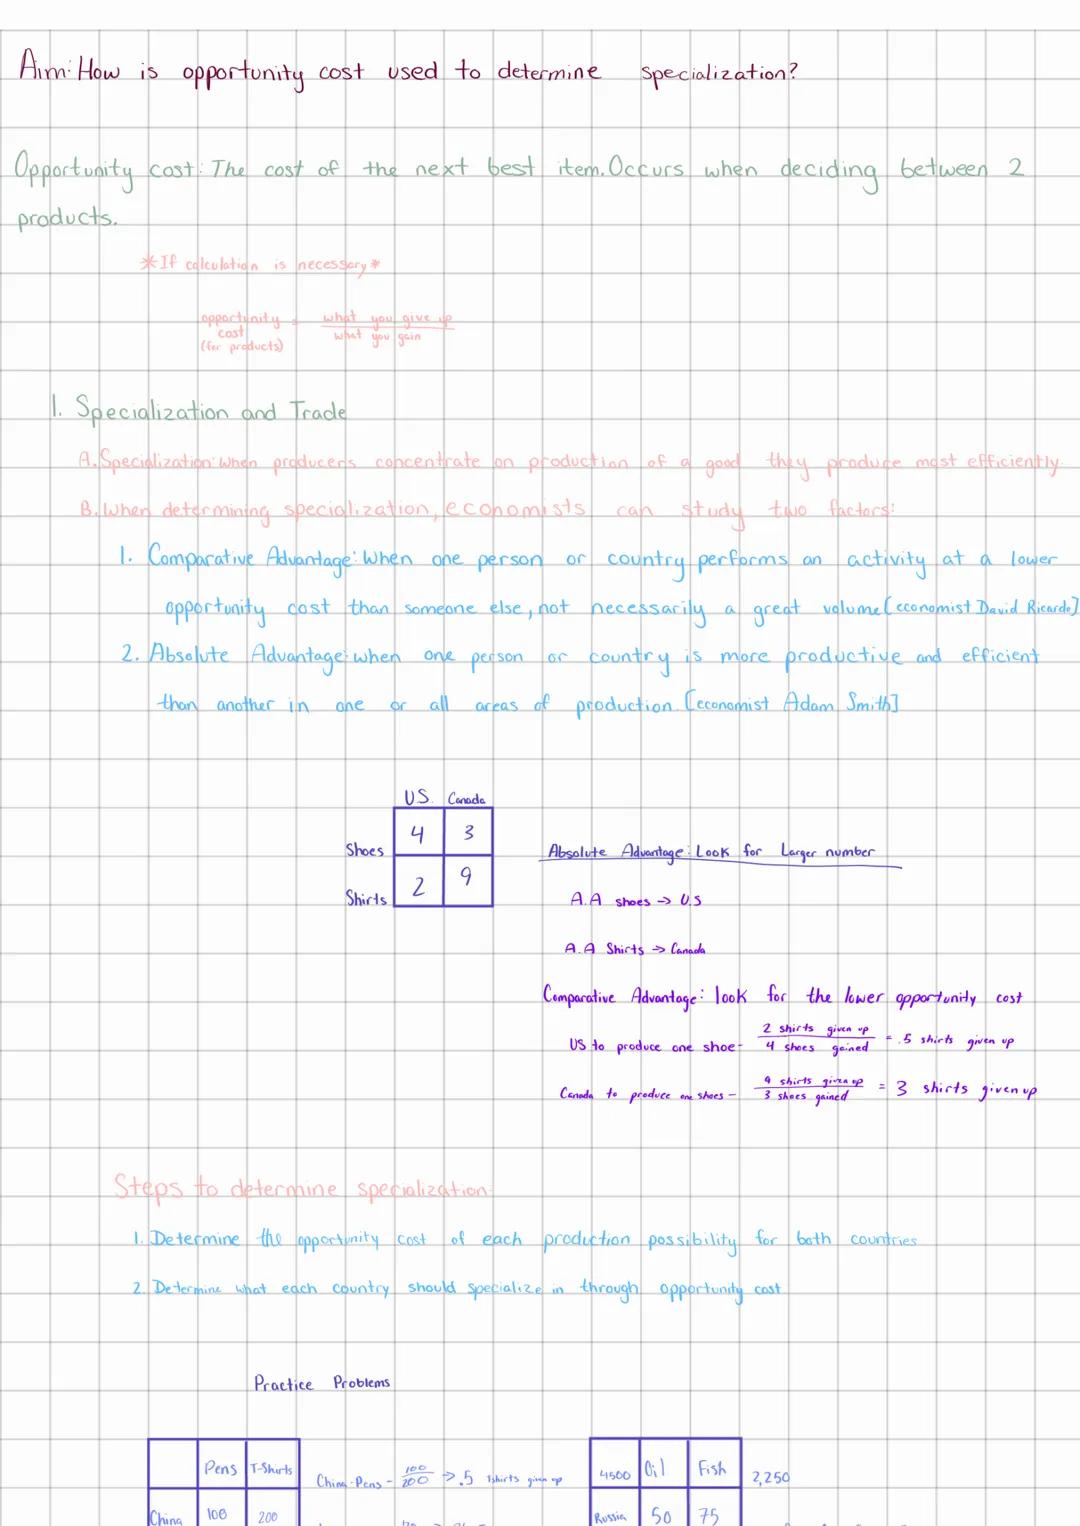 Aim: How is opportunity cost used to determine specialization?
Opportunity cost: The cost of the next best item. Occurs when deciding between 2
products.
*If calculation is necessary*
opportunity cost (for products) = what you give up / what you gain
1. Specialization and Trade
A. Specialization: When producers concentrate on production of a good they produce most efficiently
B. When determining specialization, economists can study two factors:
1. Comparative Advantage: When one person or country performs an activity at a lower
opportunity cost than someone else, not necessarily a great volume [economist David Ricardo]
2. Absolute Advantage: when one person or country is more productive and efficient
than another in one or all areas of production. [economist Adam Smith]
US. Canada
Shoes 4 3
Shirts 2 9
Absolute Advantage: Look for Larger number
A.A shoes → U.S
A.A Shirts → Canada
Comparative Advantage: look for the lower opportunity cost
US to produce one shoe- 2 shirts given up / 4 shoes gained = .5 shirts given up
Canada to produce one shoes - 9 shirts given up / 3 shoes gained = 3 shirts given up
Steps to determine specialization:
1. Determine the opportunity cost of each production possibility for both countries
2. Determine what each country should specialize in through opportunity cost
Practice Problems
Pens T-Shirts
China 100 200
China-Pens - 100/200 → .5 Tshirts given up
4500 Oil Fish 2,250
Russia 50 75